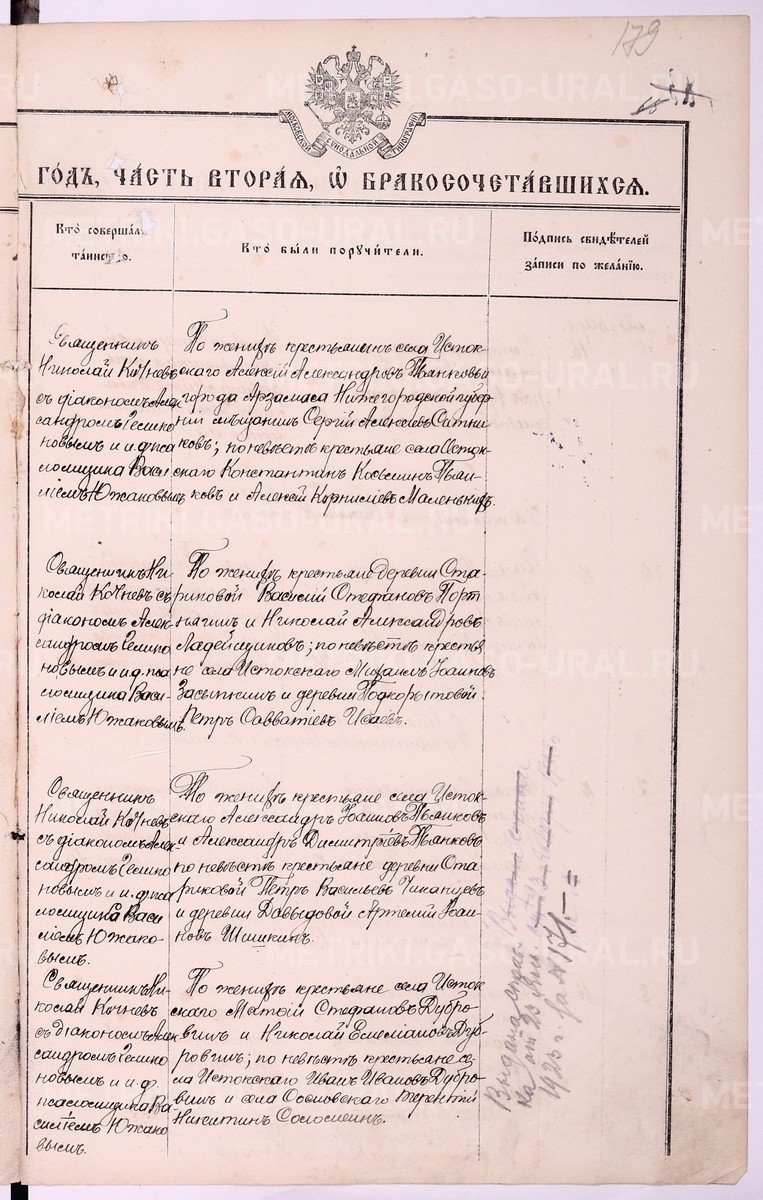 179
МОСКОВСКОЙ СѴНОДАЛЬНОЙ ТИПОГРАФІИ
ГОДЪ, ЧАСТЬ ВТОРАЯ, Ѡ БРАКОСОЧЕТАВШИХСЯ.
Кто совершалъ
таинство.
Кто были поручители.
Подпись свидѣтелей
записи по желанію.
Священникъ
Николай Кочневъ
съ діакономъ Алек
сандромъ Гелико
новымъ и и.д. пса
ломщика Васи
ліемъ Южаковымъ
По женихѣ крестьянинъ села Исток-
скаго Алексій Александровъ Пьянковъ
города Арзамаса Нижегородской губер
ніи мѣщанинъ Сергій Алексѣевъ Ситни
ковъ; по невѣстѣ крестьяне села Исток
скаго Константинъ Косьминъ Пьян-
ковъ и Алексій Корниліевъ Маленькихъ.
Священникъ Ни
колай Кочневъ съ
діакономъ Алек
сандромъ Гелико
новымъ и и.д. пса
ломщика Васи-
ліемъ Южаковымъ.
По женихѣ крестьяне деревни Ста-
риковой Василій Стефановъ Порт
нягинъ и Николай Александровъ
Ладейщиковъ; по невѣстѣ крестья
не села Истокскаго Михаилъ Іоанновъ
Засыпкинъ и деревни Подкорытовой
Петръ Савватіевъ Исаевъ.
Священникъ
Николай Кочневъ
съ діакономъ Алек
сандромъ Гелико
новымъ и и.д. пса
ломщика Васи
ліемъ Южако-
вымъ.
По женихѣ крестьяне села Исток-
скаго Александръ Іоанновъ Пьянковъ
и Александръ Димитріевъ Пьянковъ
по невѣстѣ крестьяне деревни Ста
риковой Петръ Васильевъ Чиканцевъ
и деревни Давыдовой Артемій Іоан-
новъ Шишкинъ.
Священникъ Ни-
колай Кочневъ
съ діакономъ Алек
сандромъ Гелико
новымъ и и.д.
псаломщика Ва-
силіемъ Южако
вымъ.
По женихѣ крестьяне села Исток
скаго Матѳій Стефановъ Дубро
винъ и Николай Емеліановъ Дуб-
ровинъ; по невѣстѣ крестьяне се-
ла Истокскаго Иванъ Ивановъ Дубро-
винъ и села Осиновскаго Терентій
Никитинъ Соломеинъ.
Выдана
1925 г. за № 171.
METRIKI.GASO-URAL.RU